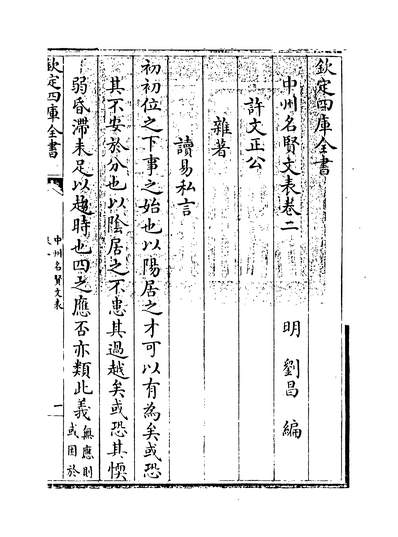 欽定四庫全書
中州名賢文表卷二
明 劉昌 編
許文正公
雜著
讀易私言
初初位之下事之始也以陽居之才可以有為矣或恐
其不安於分也以陰居之不患其過越矣或恐其懦
弱昏滯未足以趨時也四之應否亦類此義無應則或困於
欽定四庫全書
中州名賢文表
一